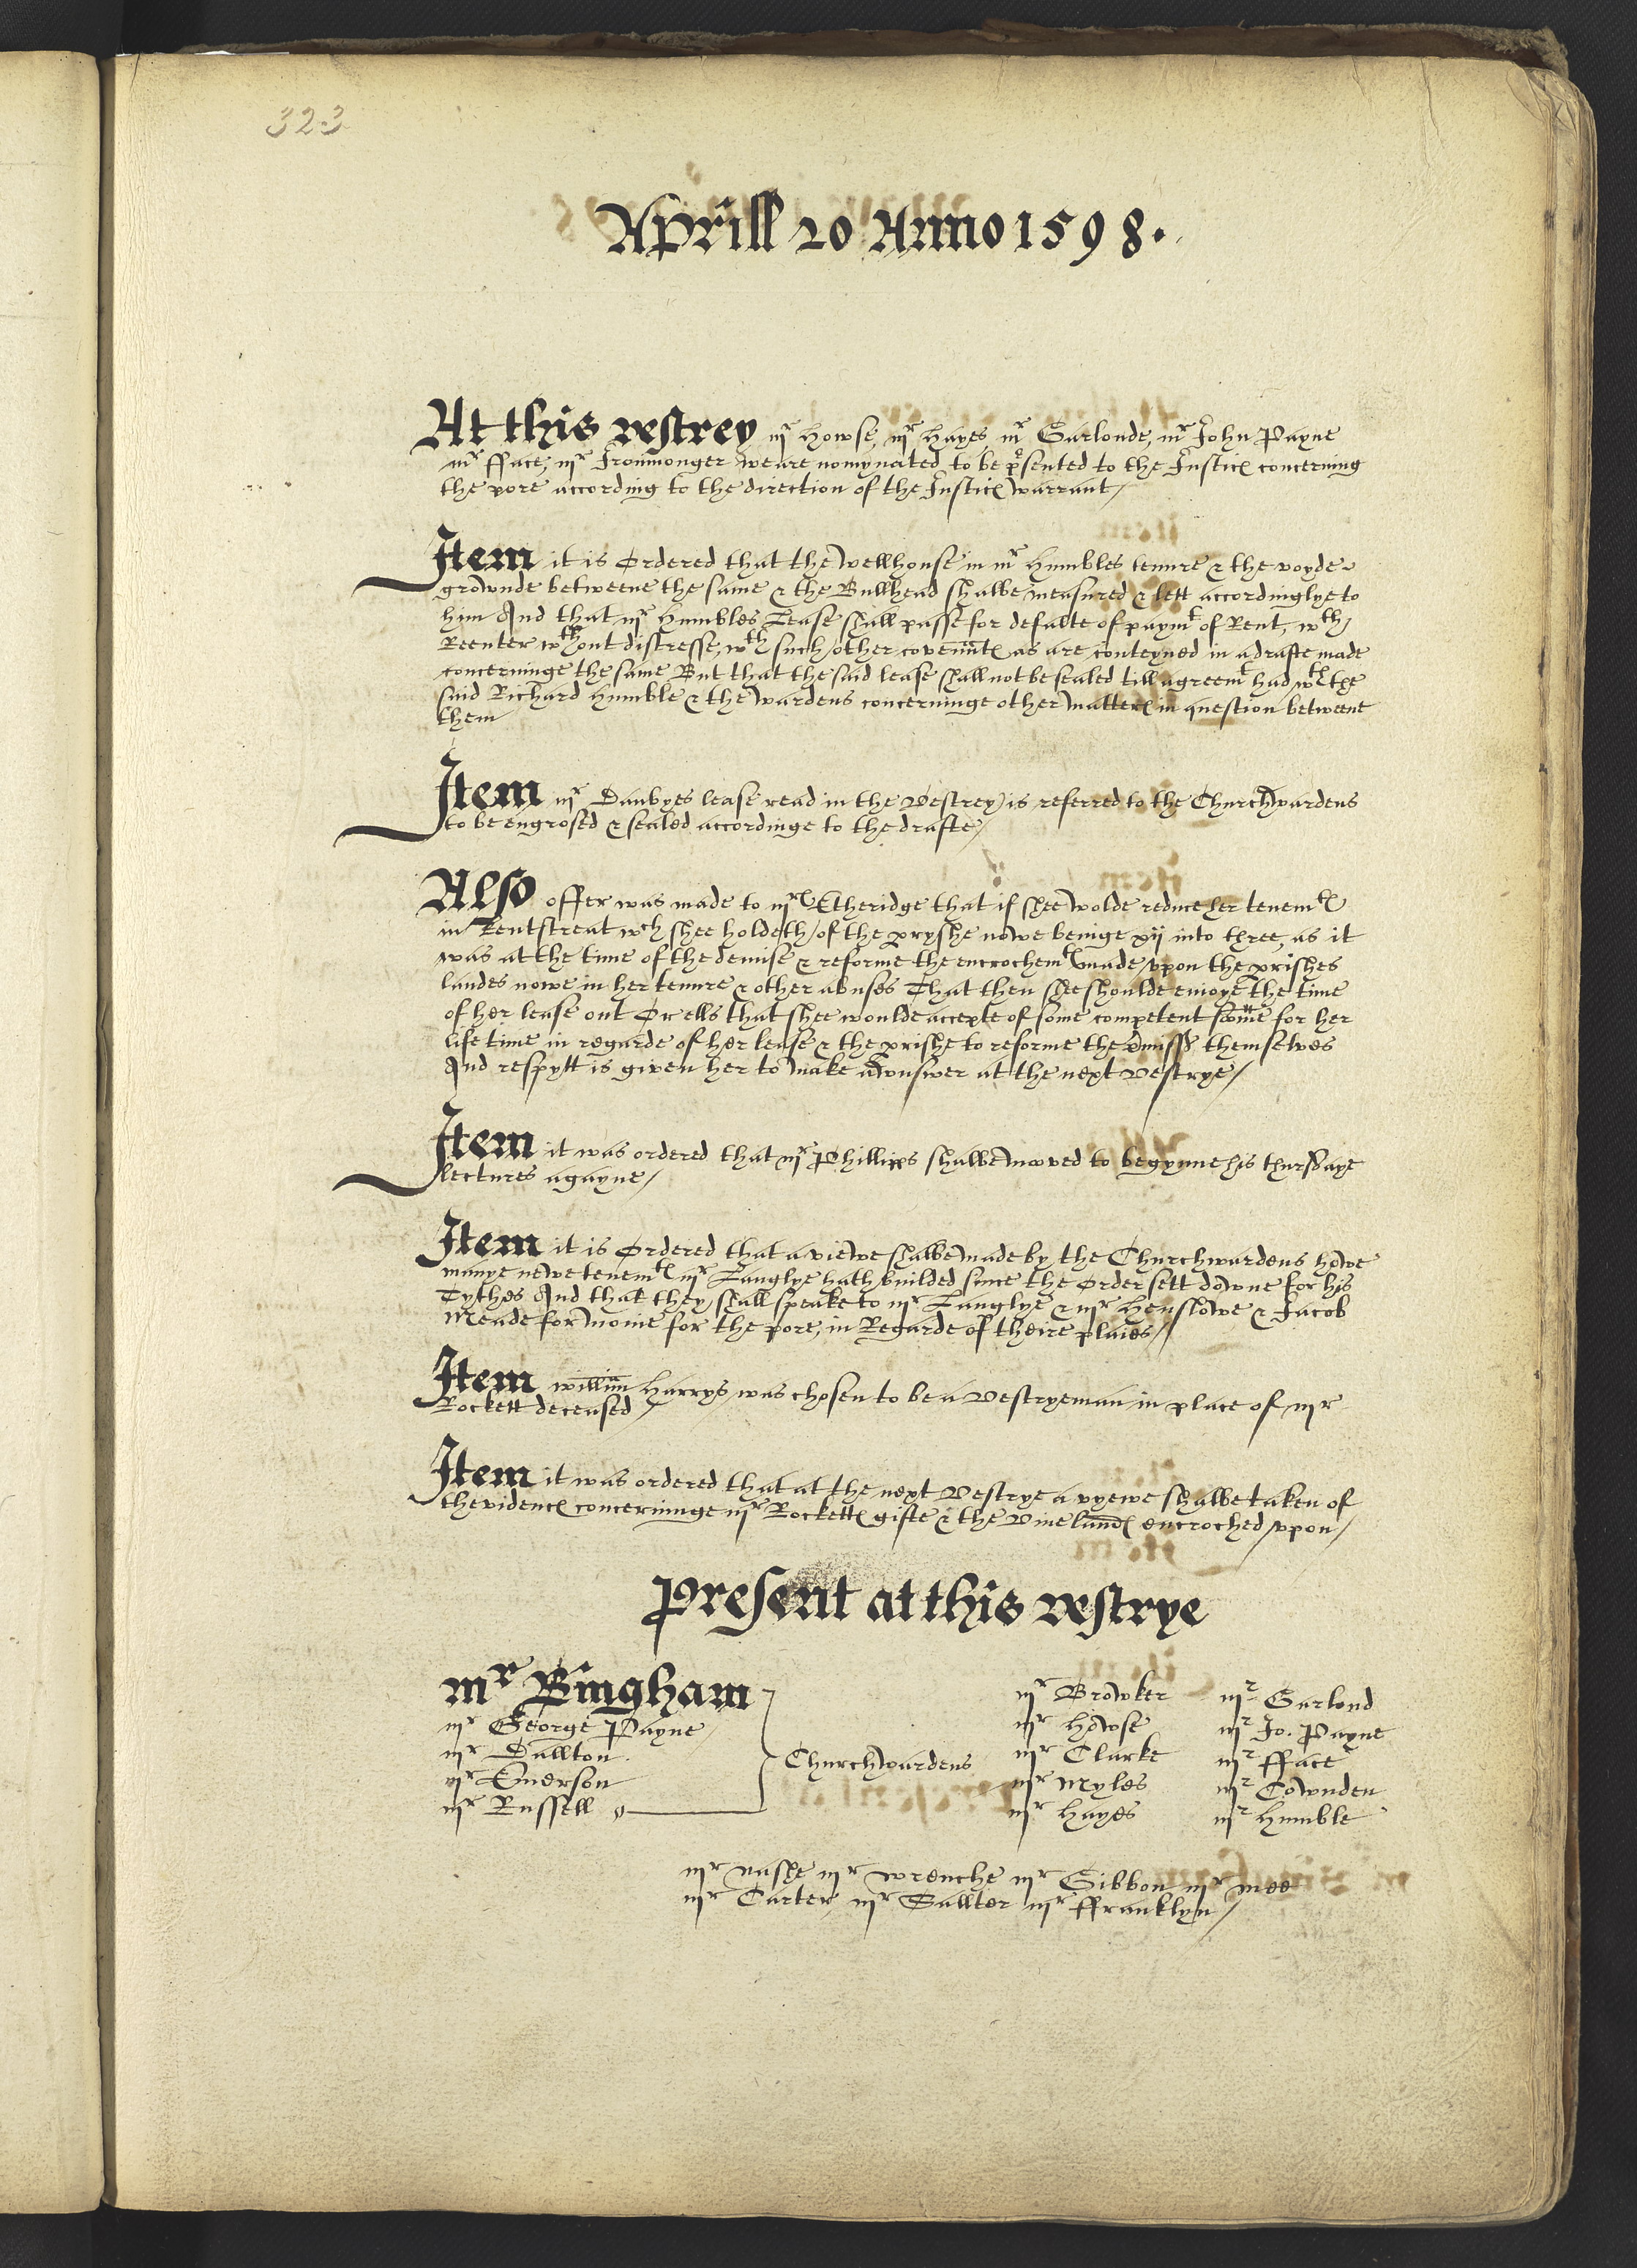 323
Aprill 20 Anno 1598.
At this vestrey mr Howse, mr Hayes mr Garlonde, mr John Payne
mr fface, mr Ironmonger weare nomynated to be psented to the Justice concerning
the pore according to the direction of the Justice warrant /
Item it is Ordered that the wellhouse in mr Humbles tenure & the voyde
grownde betweene the same & the Bullhead shalbe measured & lett accordinglye to
him And that mr Humbles Lease shall passe for defalte of paymt of Rent, wth
Reenter wthout distresse, wth such other covennts as are conteyned in a drafte made
concerninge the same But that the said lease shall not be sealed till agreemt had wth the
said Richard Humble & the wardens concerninge other matters in question betweene
them
Item mr Danbyes lease read in the Vestrey is referred to the Churchwardens
to be engrosed & sealed accordinge to the drafte /
Also offer was made to mrs Etheridge that if shee wolde reduce her tenemts
in Kentstreat wch shee holdeth of the pryshe nowe beinge xij into three, as it
was at the time of the demise & reforme the encrochemts made vpon the prishes
landes nowe in her tenure & other abuses That then shee shoulde enioye the time
of her lease out Or ells that shee woulde accepte of some competent somme for her
life time in regarde of her lease & the prishe to reforme the themselves
And respytt is given her to make awnswer at the next Vestrye /
Item it was ordered that mr Phillips shalbe moved to begynne his thursdaye
lectures agayne /
Item it is Ordered that a viewe shalbe made by the Churchwardens howe
manye newe tenemts mr Langlye hath builded since the Order sett downe for his
Tythes And that they shall speake to mr Langlye & mr Henslowe & Jacob
Meade for monie for the pore, in Regarde of theire plaies //
Item willim Harrys was chosen to be a Vestryeman in place of mr
Rockett deceased /
Item it was ordered that at the next Vestrye a vyewe shalbe taken of
thevidence concerninge mr Rocketts gifte & the Vine lands encroched vpon /
Present at this vestrye
mr Bingham
mr George Payne
mr Dallton
mr Emerson
mr Russell
Churchwardens
mr Browker
mr Howse
mr Clarke
mr Myles
mr Hayes
mr Garlond
mr Jo. Payne
mr fface
mr Cownden
mr Humble
mr nashe mr wrenche mr Gibbon mr mee
mr Carter mr Sallter mr ffranklyn /